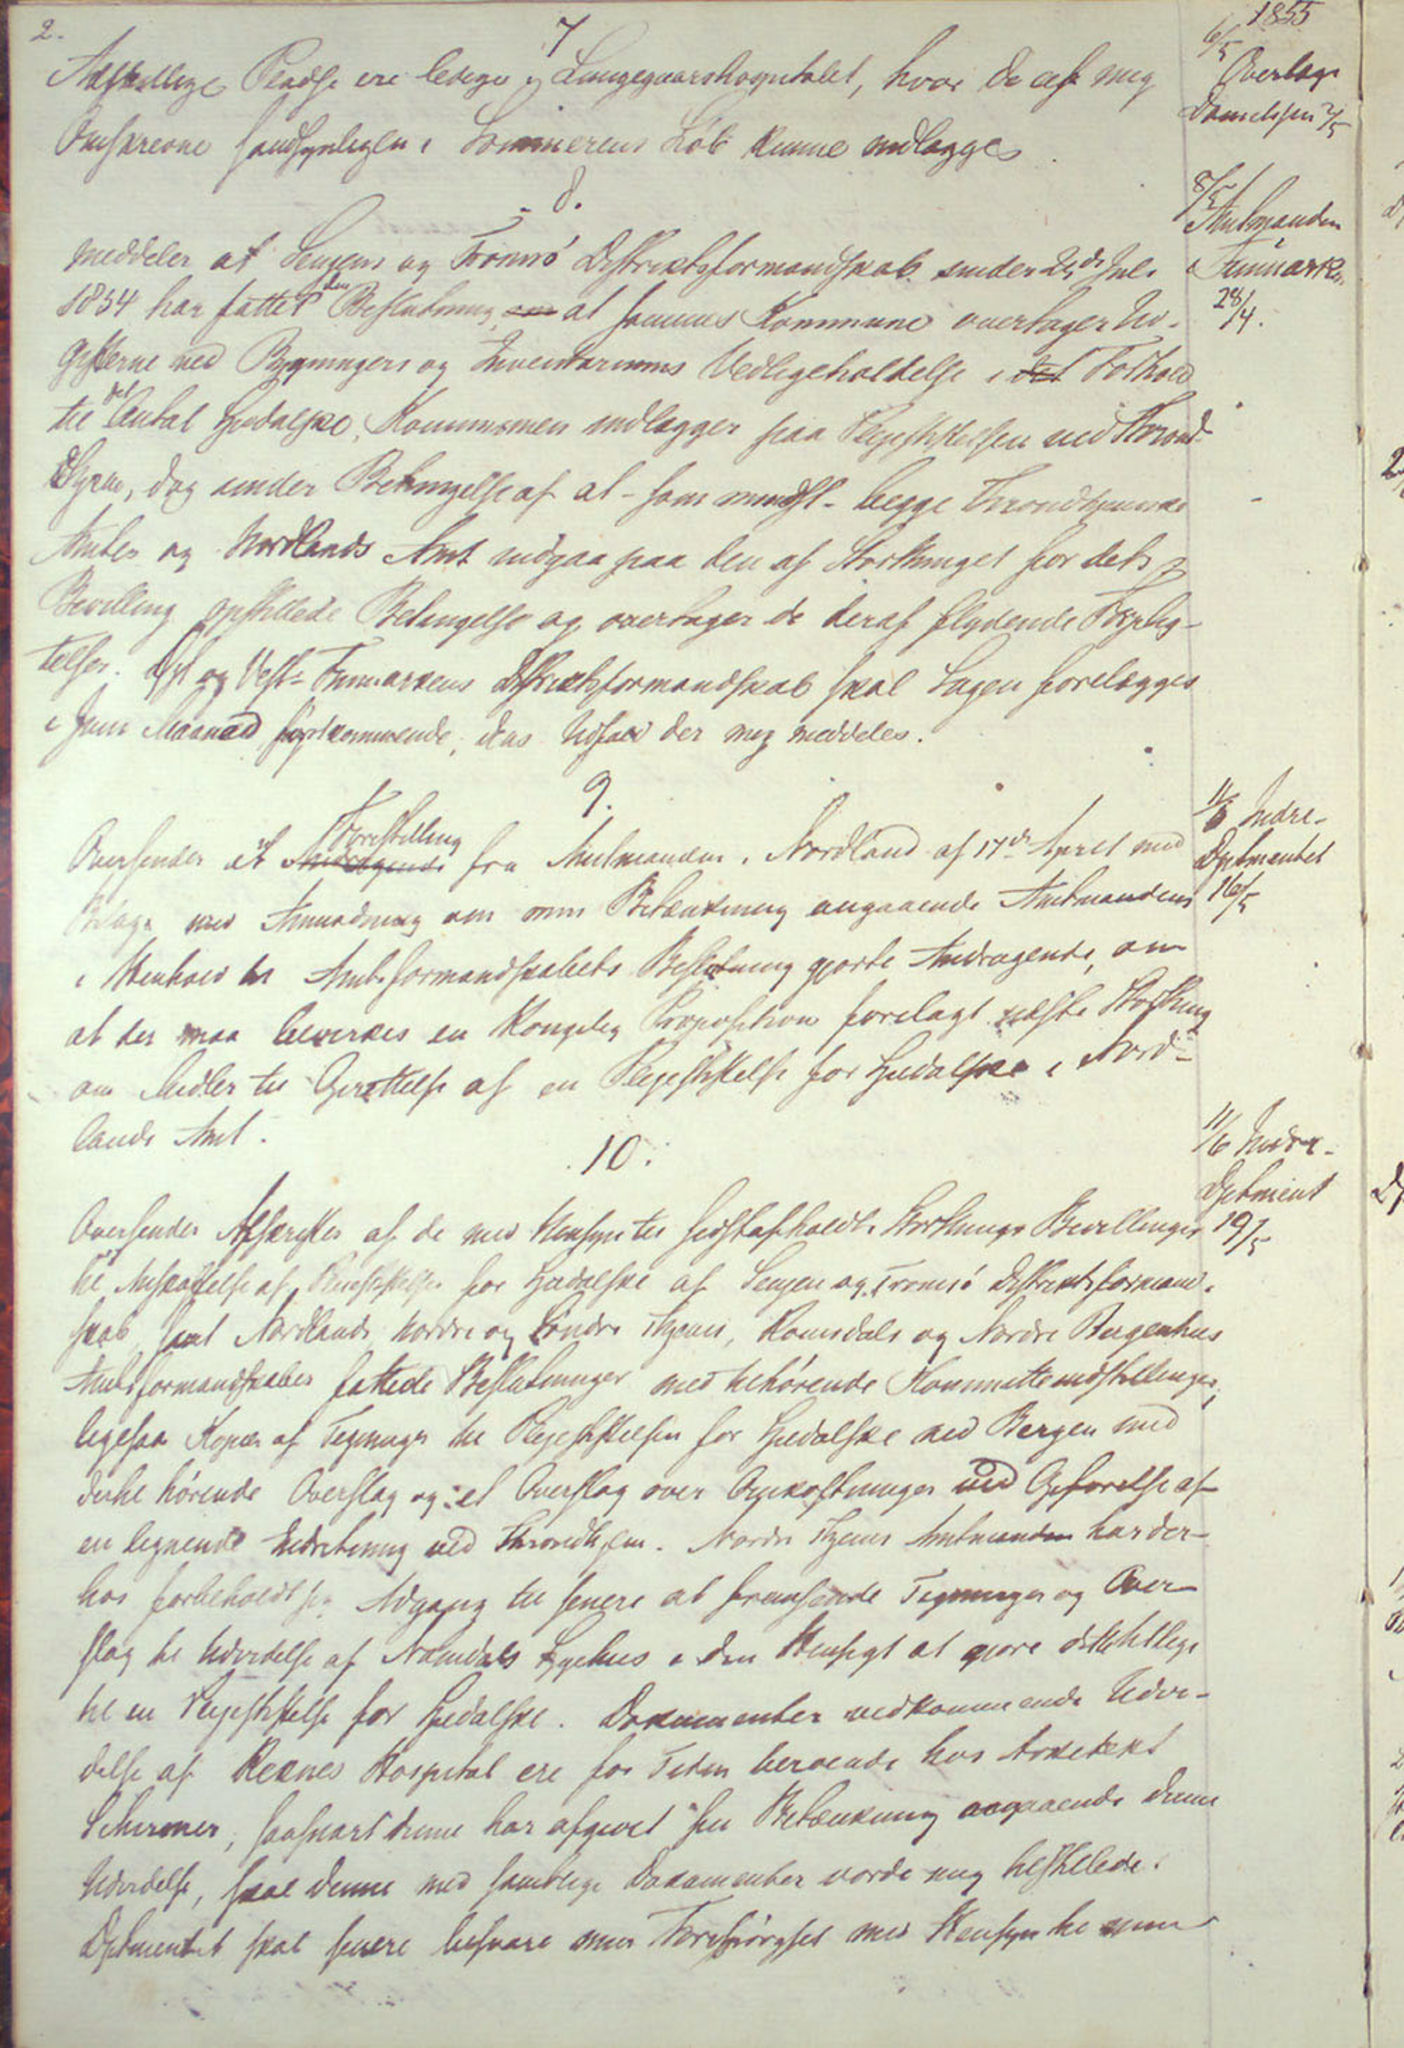 2.
1855
7
6/5 Overlæge
Danielssen 2/5
Adskillige Pladse ere ledige i Lungegaardshospitalet, hvor de af mig
Omskrevne sandsynligen i Sommerens Løb kunne indlægges.
8.
8/5 Amtmanden
i Finmarken
28/4.
meddeler at Senjens og Tromsö Distriktsformandskab under 25de Juli
1854 har fattet den Beslutning, om at sammes Kommune overtager Ud-
gifterne ved Bygningers og Inventariums Vedligeholdelse i det Forhold
til det Antal Spedalske, Kommunen indlægger paa Plejestiftelsen ved Thrond-
hjem, dog under Betingelse af at - som mindst - begge Throndhjemske
Amter og Nordlands Amt indgaa paa den af Storthinget for dets
Bevilling opstillede Betingelse og overtager de deraf flydende Forplig-
telser. Ost og Vest-Finmarkens Distriktsformandskab skal Sagen forelægges
i Juni Maaned førstkommende, hvis Udfald der mig meddeles.
9.
11/6 Indre-
Dptmentet
16/5
Oversender et Andragende Forestilling fra Amtmanden i Nordland af 17de April med
Bilage med Anmodning om min Betænkning angaaende Amtmandens
i Henhold til Amtsformandskabets Beslutning gjorte Andragende, om
at der maa bevirkes en Kongelig Proposition forelagt næste Storthing
om Midler til Oprettelse af en Plejestiftelse for Spedalske i Nord-
lands Amt.
10.
11/6 Indre-
Dptment
19/5
Oversender Afskrifter af de med Hensyn til sidstafholdte Storthings Bevillinger
til Anskaffelse af Plejestiftelser for Spedalske af Senjen og Tromsö Distriktsformand-
skab, samt Nordlands, Nordre og Søndre Thjems, Romsdals og Nordre Bergenhus
Amtsformandskaber fattede Beslutninger med tilhørende Kommitteindstillinger,
ligesaa Kopier af Tegninger til Plejestiftelsen for Spedalske ved Bergen med
dertil hørende Overslag og et Overslag over Omkostninger ved Opførelse af
en lignende Indretning ved Throndhjem. Nordre Thjems Amtmanden har der-
hos forbeholdt sig Adgang til senere at fremsende Tegninger og Over-
slag til Udvidelse af Namdals Sygehus i den Hensigt at gjøre dette tillige
til en Plejestiftelse for Spedalske. Dokumenter vedkommende Udvi-
delse af Reknes Hospital ere for Tiden beroende hos Arkitekt
Schirmer, saasnart denne har afgivet sin Betænkning angaaende denne
Udvidelse, skal denne med samtlige Dokumenter vorde mig tilstillede.
Dptmentet skal senere besvare min Forespørgsel med Hensyn til min